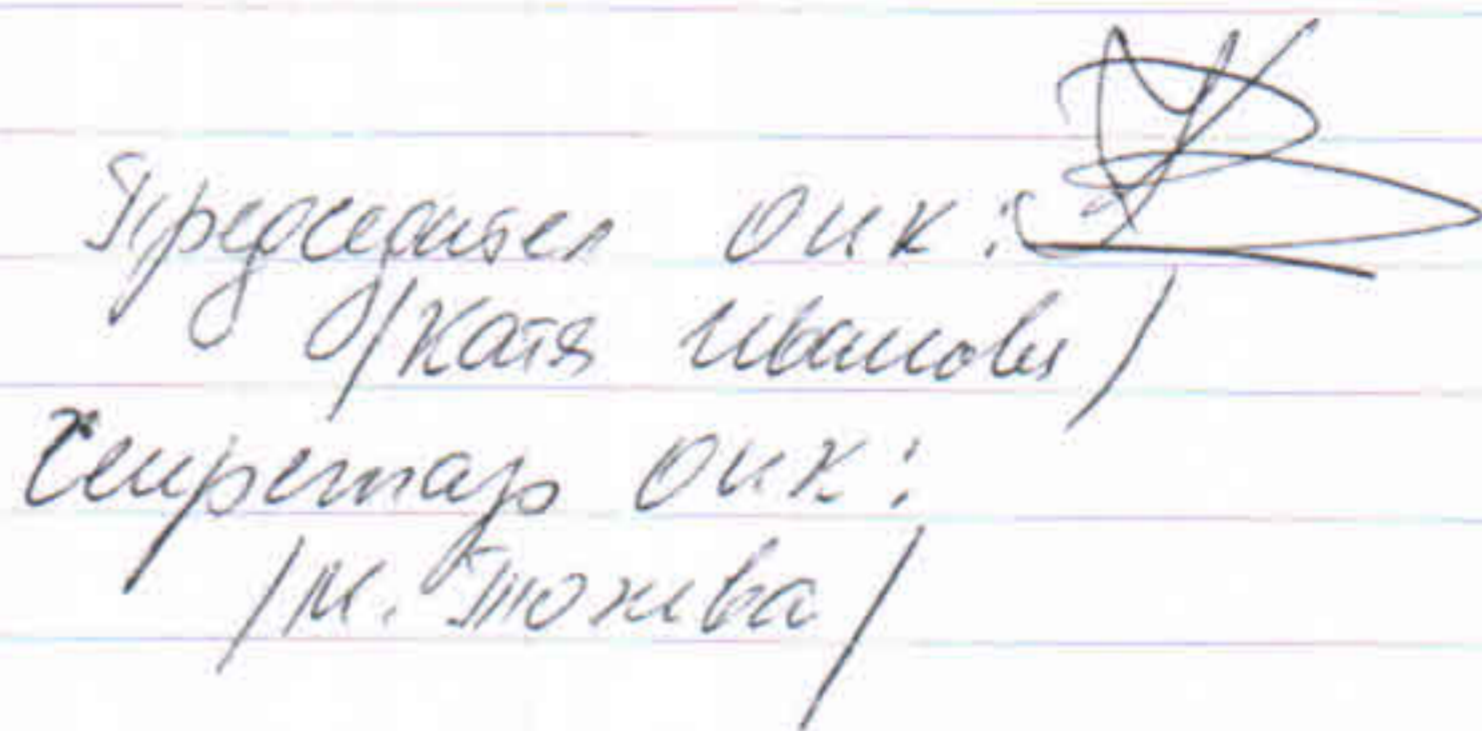 Председател ОИК:
/Катя Иванова/
Секретар ОИК:
/М.